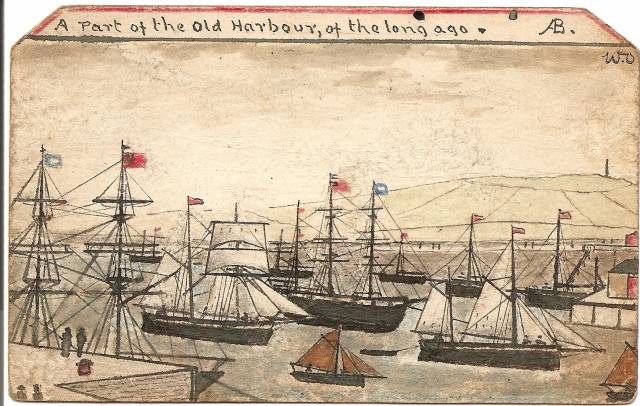 A Part of the Old Harbour, of the long ago.
Æ.
W.O